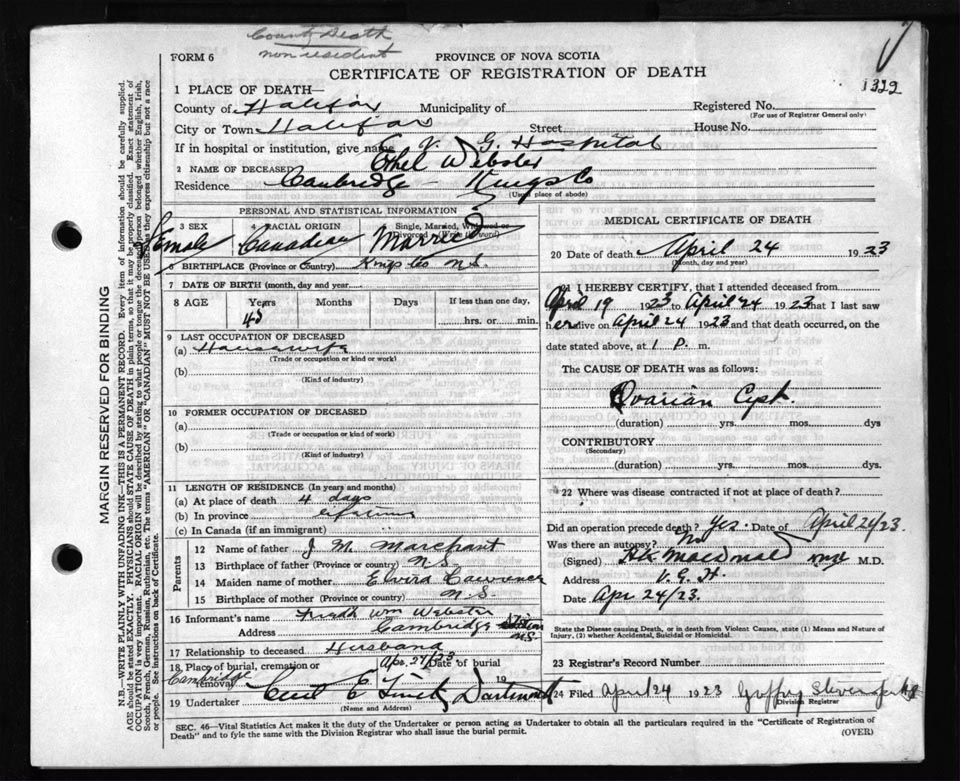 County Death
non resident
1322
FORM 6
PROVINCE OF NOVA SCOTIA
CERTIFICATE OF REGISTRATION OF DEATH
MARGIN RESERVED FOR BINDING
N.B.—WRITE PLAINLY WITH UNFADING INK—THIS IS A PERMANENT RECORD. Every item of information should be carefully supplied.
AGE should be stated EXACTLY. PHYSICIANS should STATE CAUSE OF DEATH in plain terms, so that it may be properly classified. Exact statement of
OCCUPATION is very important. RACIAL ORIGIN will be described by stating to what people or tongue the deceased person belonged whether English, Irish,
Scotch, French, German, Russian, Ruthenian, etc. The terms "AMERICAN" or "CANADIAN" MUST NOT BE USED as they express citizenship but not a race
of people. See instructions on back of Certificate.
1 PLACE OF DEATH—
County of Halifax Municipality of Registered No.
(For use of Registrar General only)
City or Town Halifax Street House No.
If in hospital or institution, give name V. G. Hospital
2 NAME OF DECEASED Ethel Webster
Residence Cambridge - Kings Co
(Usual place of abode)
PERSONAL AND STATISTICAL INFORMATION
3 SEX 4 RACIAL ORIGIN Single, Married, Widowed or Divorced (Write the word)
Female Canadian Married
6 BIRTHPLACE (Province or Country) Kings Co N.S.
7 DATE OF BIRTH (month, day and year)
8 AGE Years Months Days If less than one day,
hrs. or min.
9 LAST OCCUPATION OF DECEASED
(a) Housewife
(Trade or occupation or kind or work)
(b)
(Kind of industry)
10 FORMER OCCUPATION OF DECEASED
(a)
(Trade or occupation or kind of work)
(b)
(Kind of industry)
11 LENGTH OF RESIDENCE (In years and months)
(a) At place of death 4 days
(b) In province lifetime
(c) In Canada (if an immigrant)
Parents
12 Name of father J. M. Marchant
13 Birthplace of father (Province or country) N.S.
14 Maiden name of mother Elvira Lawrence
15 Birthplace of mother (Province or Country) N.S.
16 Informant's name Wm Webster
Address Cambridge Station N.S.
17 Relationship to deceased Husband
18 Place of burial, cremation or removal Cambridge Date of burial Apr. 27/23 19
19 Undertaker Cecil E Dartmouth
(Name and Address)
MEDICAL CERTIFICATE OF DEATH
20 Date of death April 24 1923
(Month, day and year)
21 I HEREBY CERTIFY, that I attended deceased from
April 19 1923 to April 24 1923 that I last saw
her alive on April 24 1923 and that death occurred, on the
date stated above, at 1 P. m.
The CAUSE OF DEATH was as follows:
Ovarian Cyst.
(duration) yrs. mos. dys
CONTRIBUTORY
(Secondary)
(duration) yrs. mos. dys.
22 Where was disease contracted if not at place of death?
Did an operation precede death? Yes. Date of April 24/23.
Was there an autopsy? No
(Signed) MacDonald M.D.
Address V.G.H.
Date Apr 24/23.
State the Disease causing Death, or in death from Violent Causes, state (1) Means and Nature of
Injury, (2) whether Accidental, Suicidal or Homicidal.
23 Registrar's Record Number
24 Filed April 24 1923
Division Registrar
SEC. 46—Vital Statistics Act makes it the duty of the Undertaker or person acting as Undertaker to obtain all the particulars required in the "Certificate of Registration of
Death" and to fyle the same with the Division Registrar who shall issue the burial permit.
(OVER)